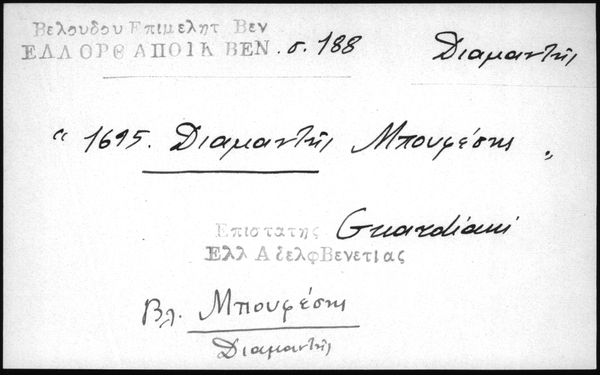 Βελουδου Επιμελητ Βεν
ΕΛΛ ΟΡΘ ΑΠΟΙΚ ΒΕΝ. σ. 188 Διαμαντής
“ 1695. Διαμαντής Μπουφέσης „
Επιστατης Guardiani
Ελλ Α δελφ Βενετίας
Βλ. Μπουφέσης
Διαμαντής